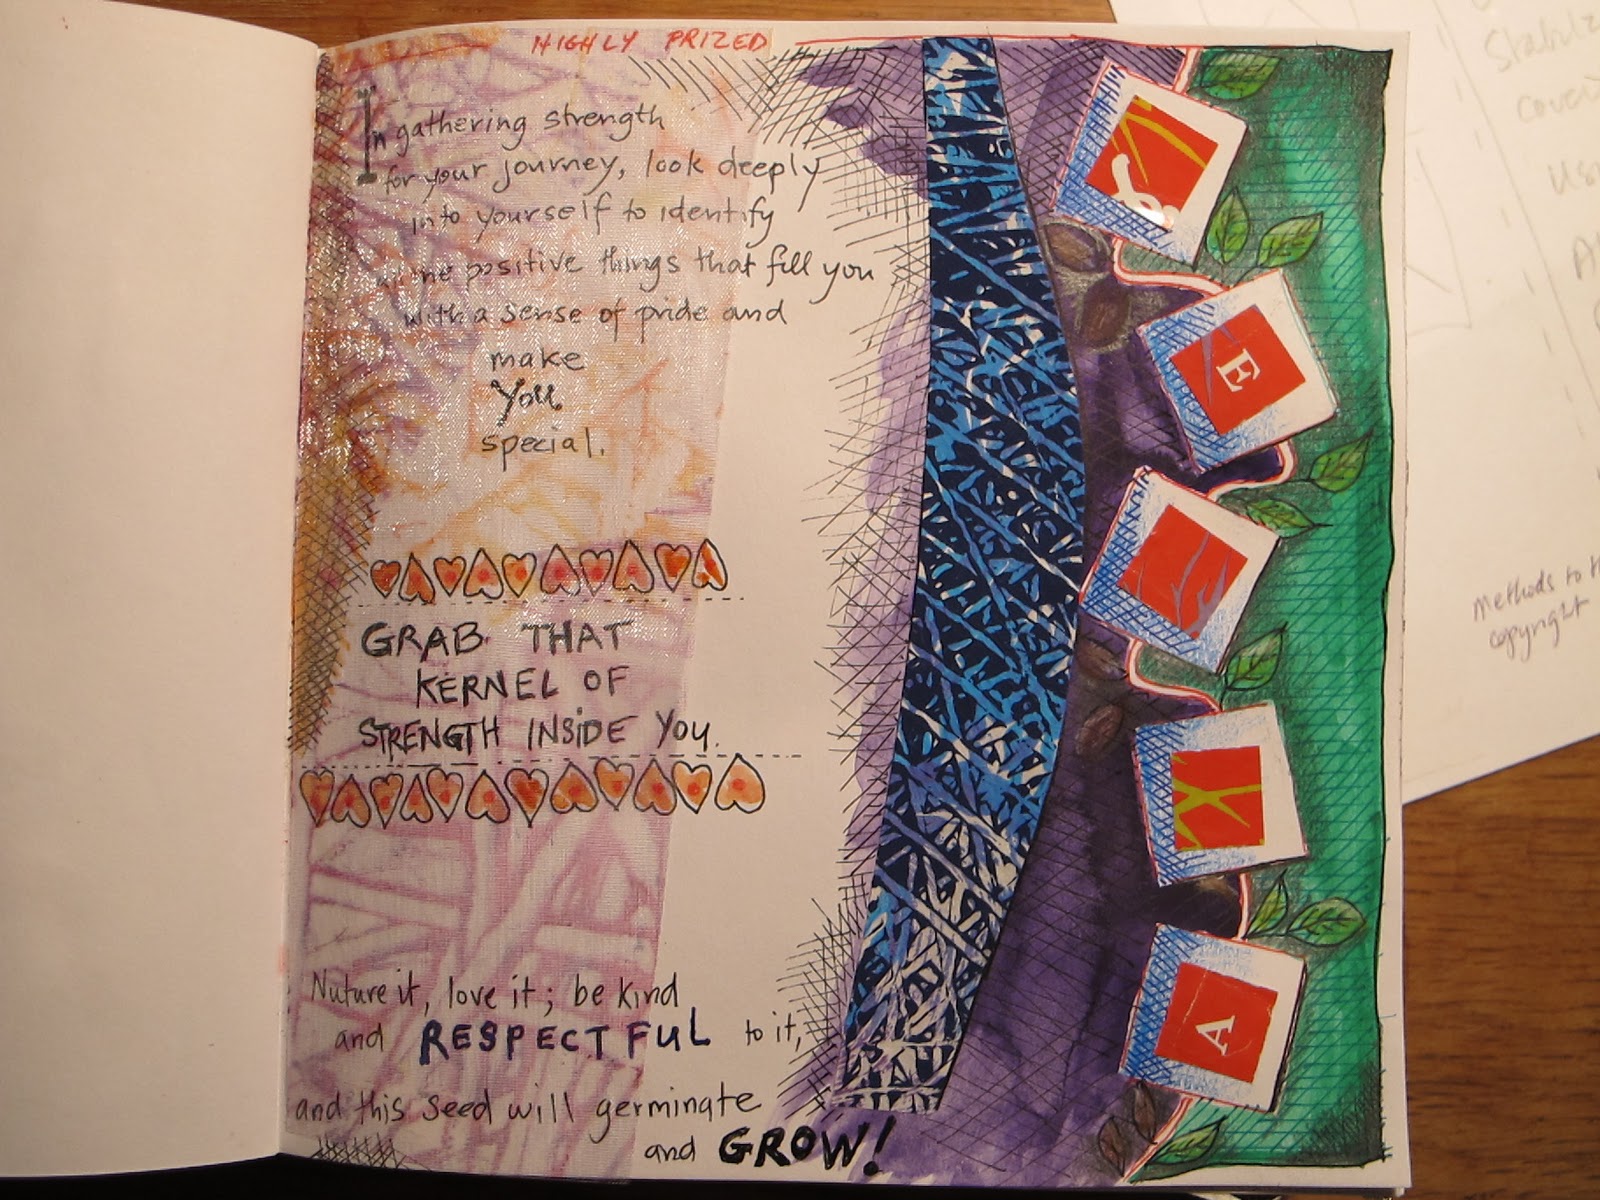 HIGHLY PRIZED
In gathering strength
for your journey, look deeply
into yourself to identify
positive things that fill you
with a sense of pride and
make
you
special.
GRAB THAT
KERNEL OF
STRENGTH INSIDE YOU.
Nuture it, love it; be kind
and RESPECTFUL to it,
and this seed will germinate
and GROW!
E
A
Methods to
copyright